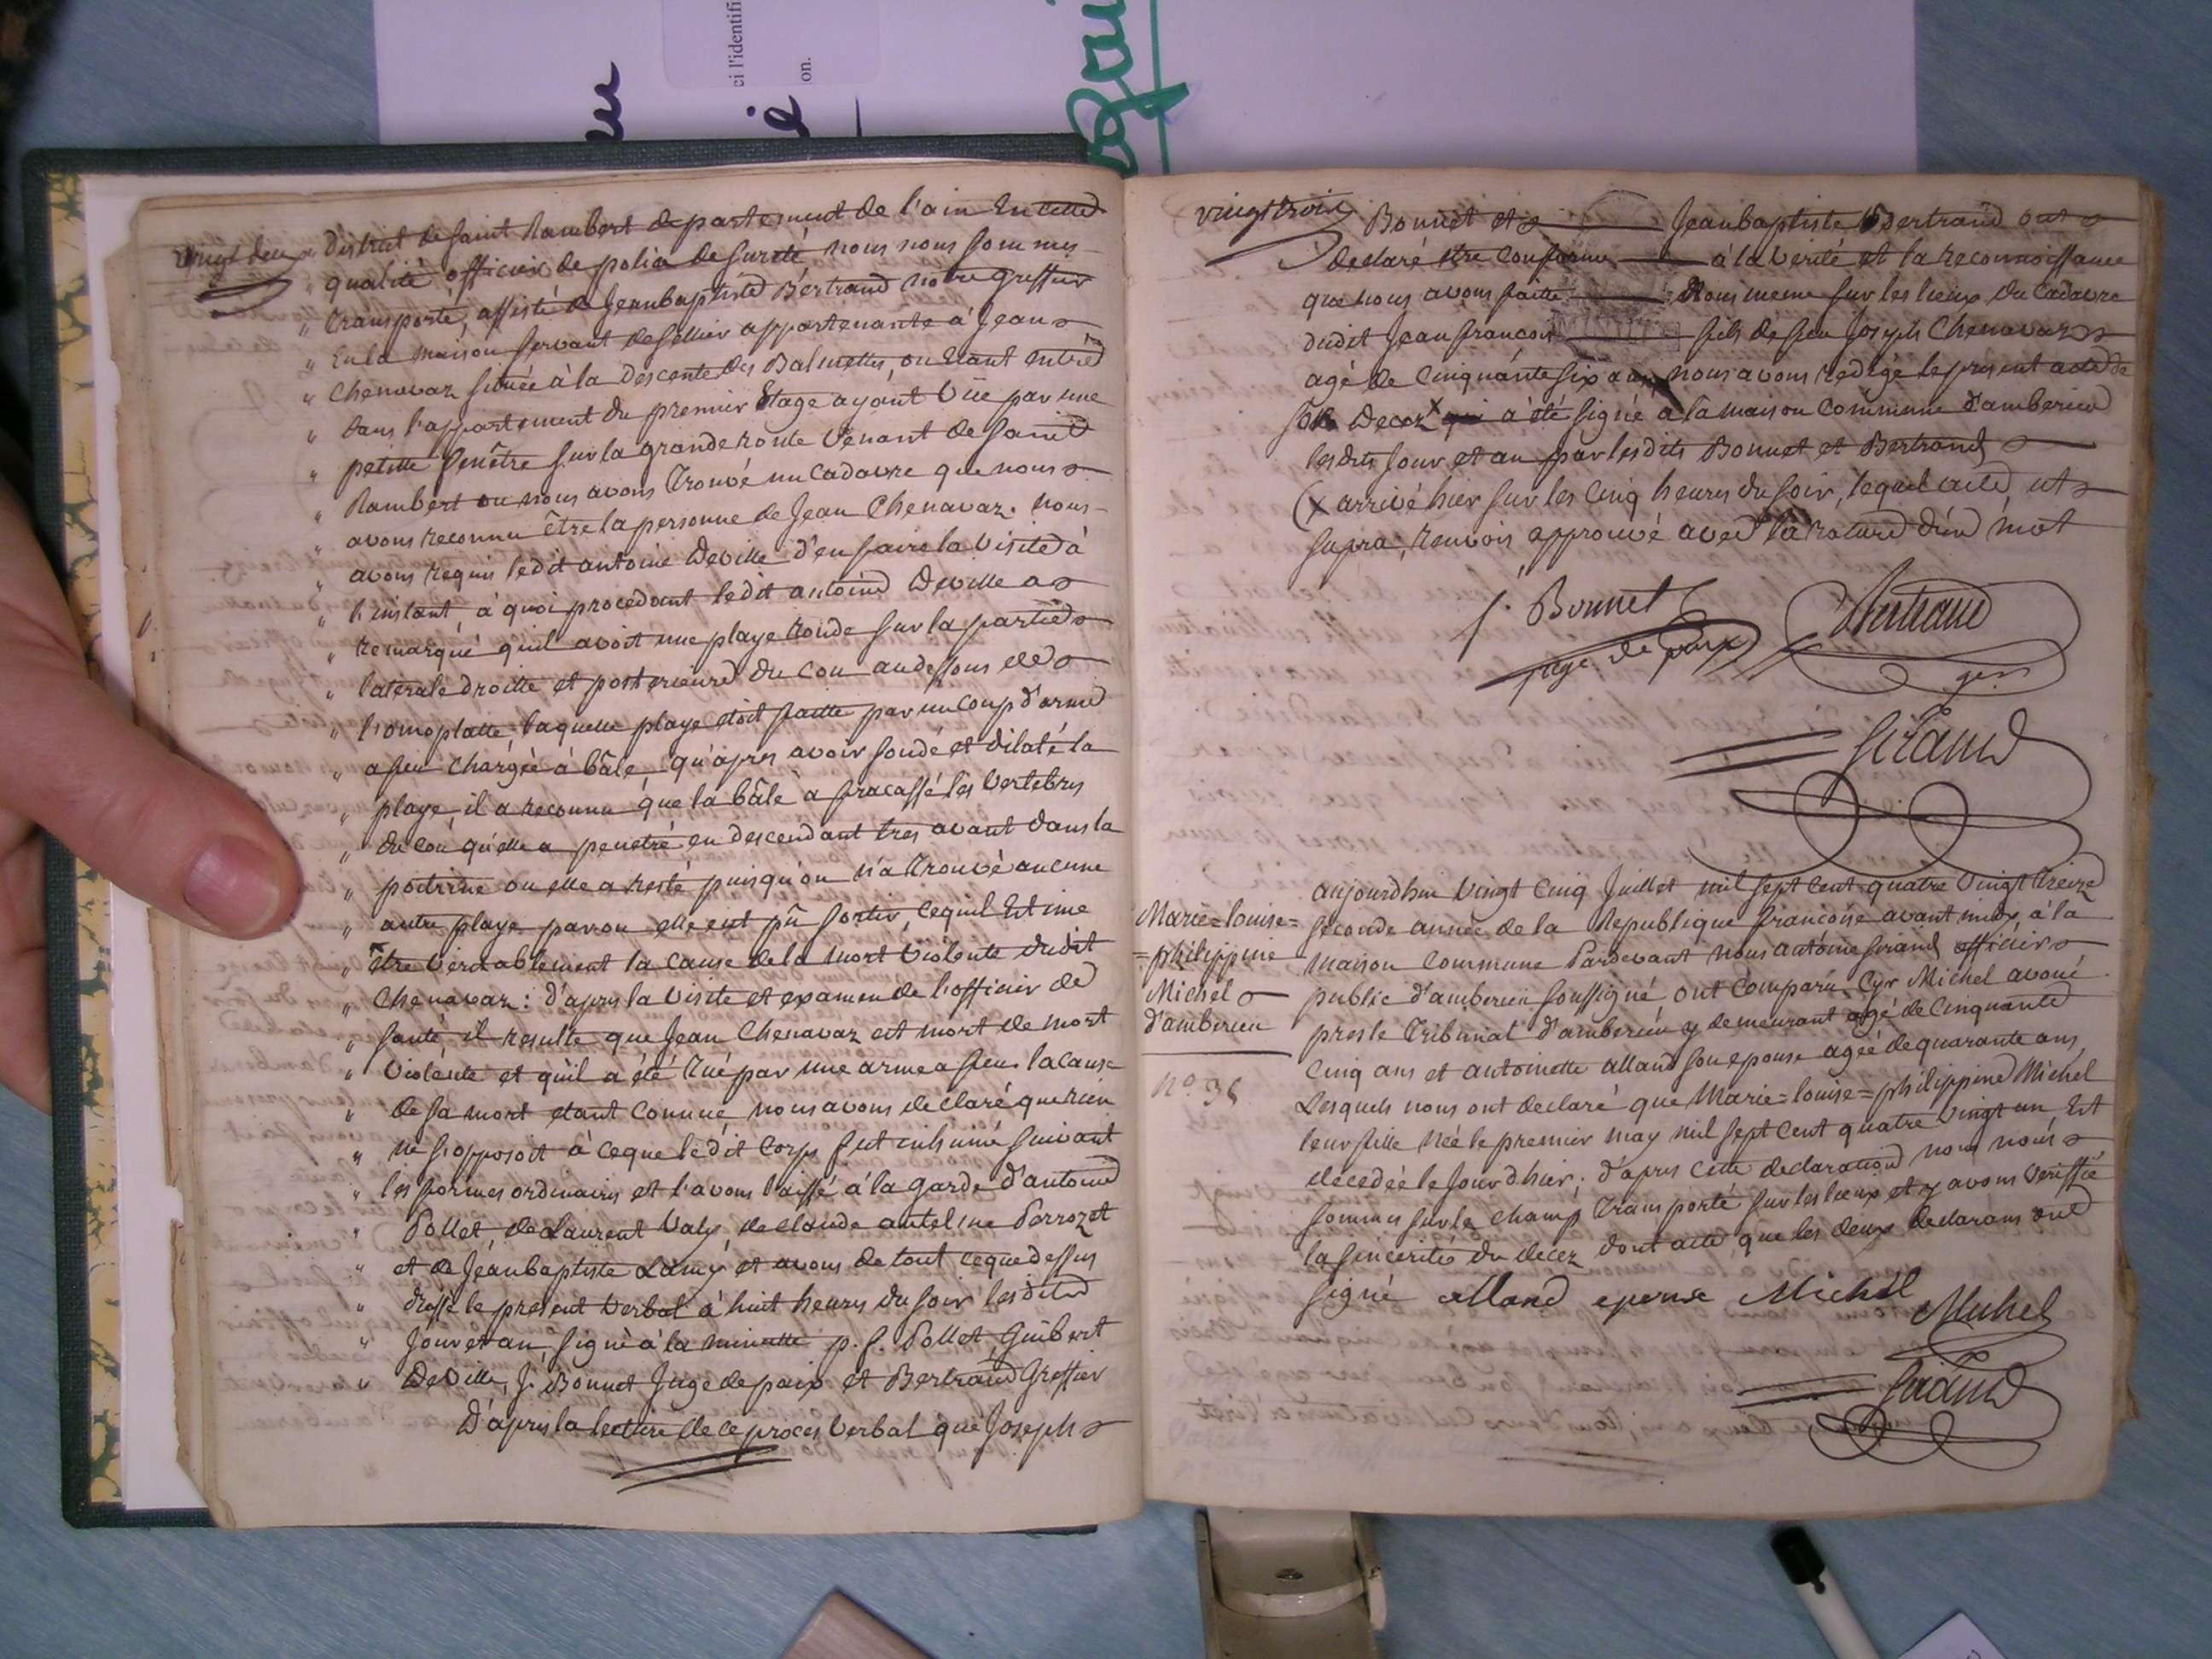 ci l'identifi
on.
vingt deux
" district de saint Rambert departement de l'ain En cette
" qualité officier de police de sureté nous nous sommes
" transporté, assisté de Jeanbaptiste Bertrand notre greffier
" En la maison servant de sellier appartenante à Jean
" Chenavaz située à la Descente des Balmettes, ou étant entré
" dans l'appartement du premier Etage ayant vüe par une
" petitte fenêtre sur la grande route venant de saint
" Rambert ou nous avons trouvé un cadavre que nous
" avons reconnu être la personne de Jean Chenavaz. nous
" avons requis ledit antoine Deville d'en faire la visite à
" l'instant, à quoi procedant ledit antoine Deville a
" remarqué quil avoit une playe ronde sur la partie
" laterale droitte et posterieure du cou audessous de
" l'omoplatte, laquelle playe etoit faitte par un coup d'arme
" a feu chargée à bâle, qu'apres avoir sondé et dilaté la
" playe, il a reconnu que la bâle a fracassé les vertebres
" du cou qu'elle a penetré en descendant tres avant dans la
" poitrine ou elle a resté puisqu'on n'a trouvé aucune
" autre playe par ou elle eut pû sortir, cequil Estime
" être veritablement la cause de la mort violente dudit
" Chenavaz: d'apres la visite et examen de l'officier de
" santé il resulte que Jean Chenavaz est mort de mort
" violente et qu'il a été tué par une arme a feu. la cause
" de sa mort etant connue, nous avons declaré que rien
" ne s'opposoit à ceque ledit corps fut inhumé suivant
" les formes ordinaires et l'avons laissé à la garde d'antoine
" Pollet, de Laurent Valy, de claude antelme Perrozet
" et de Jeanbaptiste Lamy et avons de tout ceque dessus
" dressé le present verbal à huit heures du soir lesdits
" Jour et an, signé à la minutte p. f. Pollet, Guibert
" Deville, J. Bonnet Juge de paix et Bertrand Greffier
D'apres la lecture de ce procès verbal que Joseph
vingt trois
Bonnet et Jeanbaptiste Bertrand ont
declaré être conforme à la verité et la reconnoissance
que nous avons faitte Nous meme sur les lieux du cadavre
dudit Jean francois fils de feu Joseph Chenavaz
agé de cinquante six ans, nous avons redigé le present acte de
son Decez x qui a été signé a la maison commune d'amberieu
lesdits Jour et an par lesdits Bonnet et Bertrand
(x arrivé hier sur les cinq heures du soir, lequel acte, ut
supra, renvois approuvé avec la rature d'un mot
J. Bonnet
juge de paix
Bertrand
ger
Giraud
Marie=louise=
=philippine
Michel
d'amberieu
No. 38
aujourdhui vingt cinq Juillet mil sept cent quatre vingt treize
seconde année de la Republique francoise avant midy, à la
maison commune Pardevant nous antoine Giraud officier
public d'amberieu soussigné ont comparu Cyr Michel avoué
pres le Tribunal d'amberieu y demeurant agé de cinquante
cinq ans et antoinette alland son epouse agée de quarante ans,
Lesquels nous ont declaré que Marie=louise=philippine Michel
leur fille née le premier may mil sept cent quatre vingt un Est
decedée le Jour d'hier; d'apres cette declaration nous nous
sommes sur le champ transporté sur les lieux et y avons veriffié
la sincerité du decez dont acte que les deux declarans ont
signé alland epouse Michel
Michel
Giraud